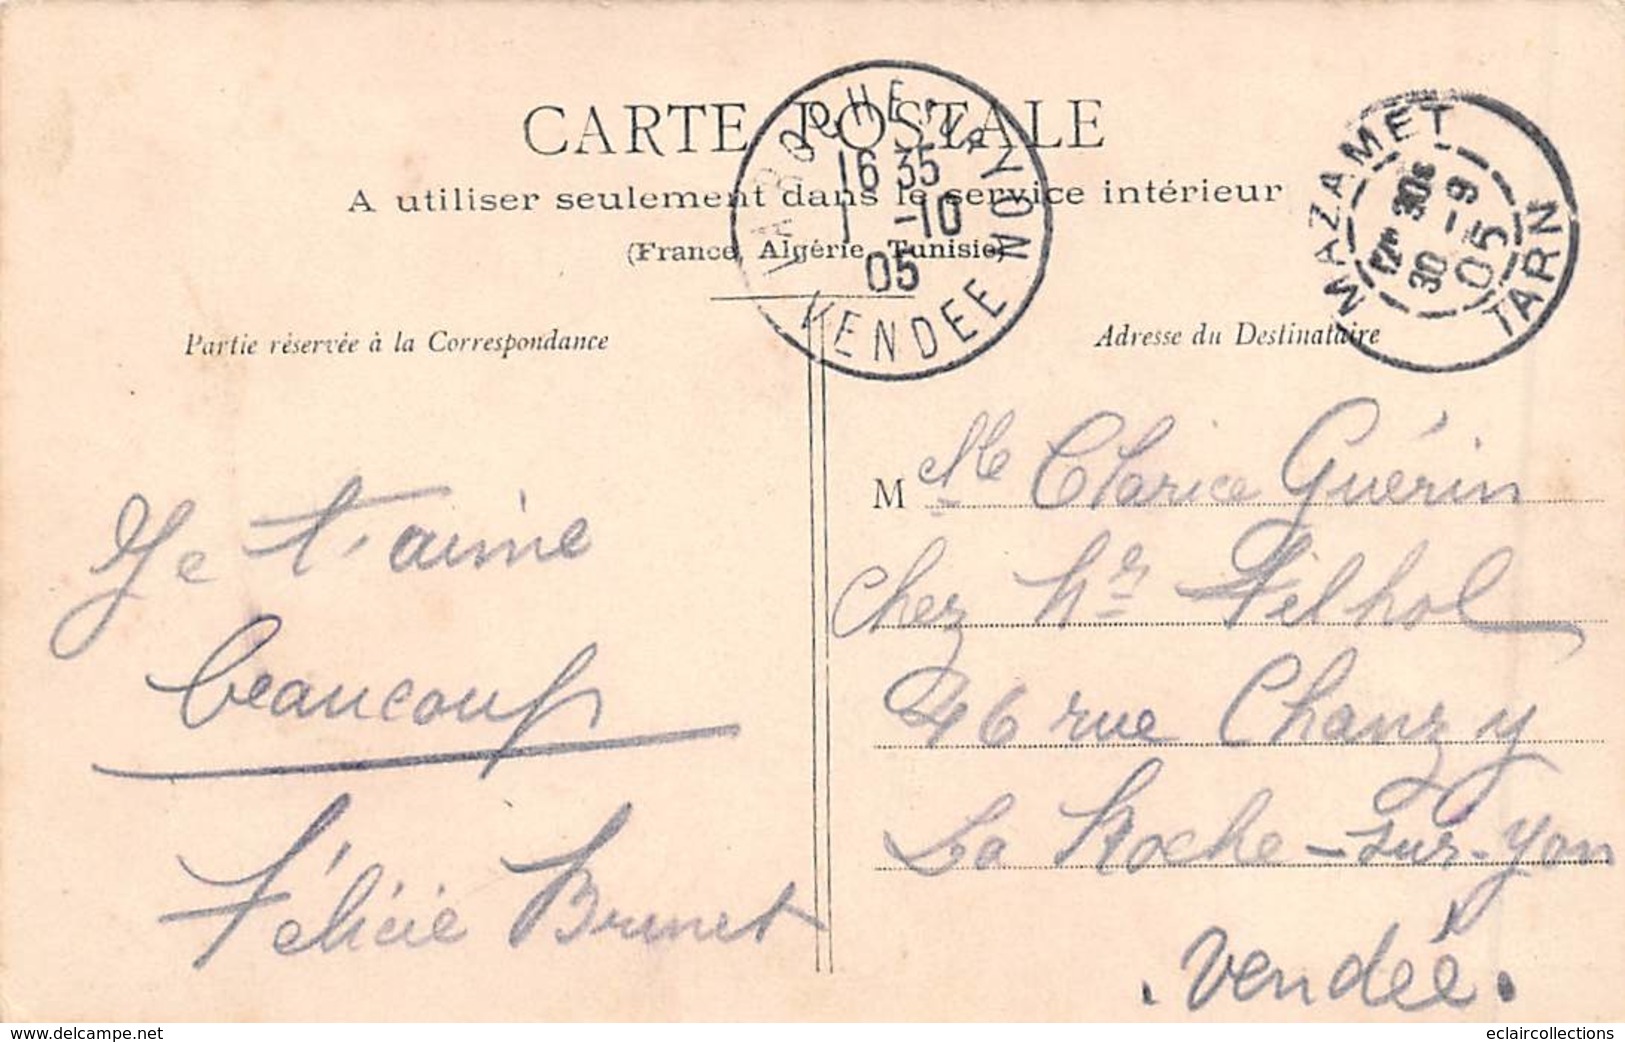 CARTE POSTALE
A utiliser seulement dans le service intérieur
(France, Algérie, Tunisie)
LA ROCHE-S-YON
16 35
1 -10
05
VENDEE
MAZAMET
12 30
30 -9
05
TARN
Partie réservée à la Correspondance
Adresse du Destinataire
Je t'aime
beaucoup
Félicie Brunet
M Mlle Clarice Guérin
chez Mr Filhol
46 rue Chanzy
La Roche-sur-Yon
Vendée.
www.delcampe.net
eclaircollections